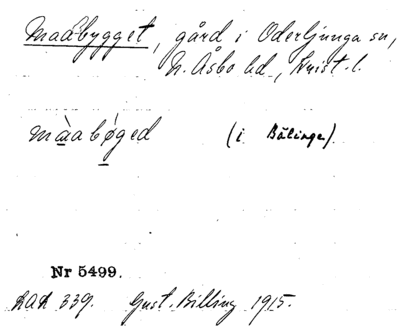 Maabygget, gård i Oderljunga sn,
N. Åsbo hd, Krist. l.
màabǿged (i Bälinge).
Nr 5499.
LAL 339. Gust. Billing 1915.